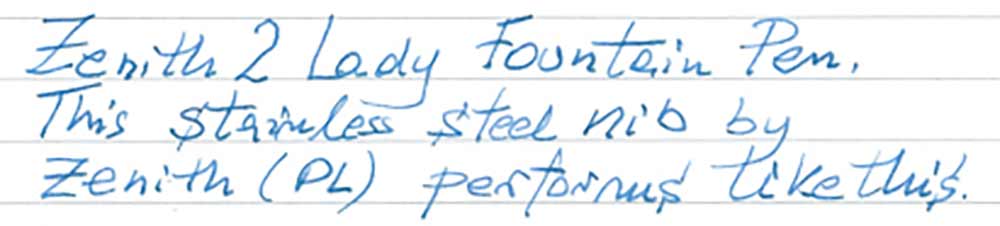 Zenith 2 Lady Fountain Pen.
This stainless steel nib by
Zenith (PL) performs like this.